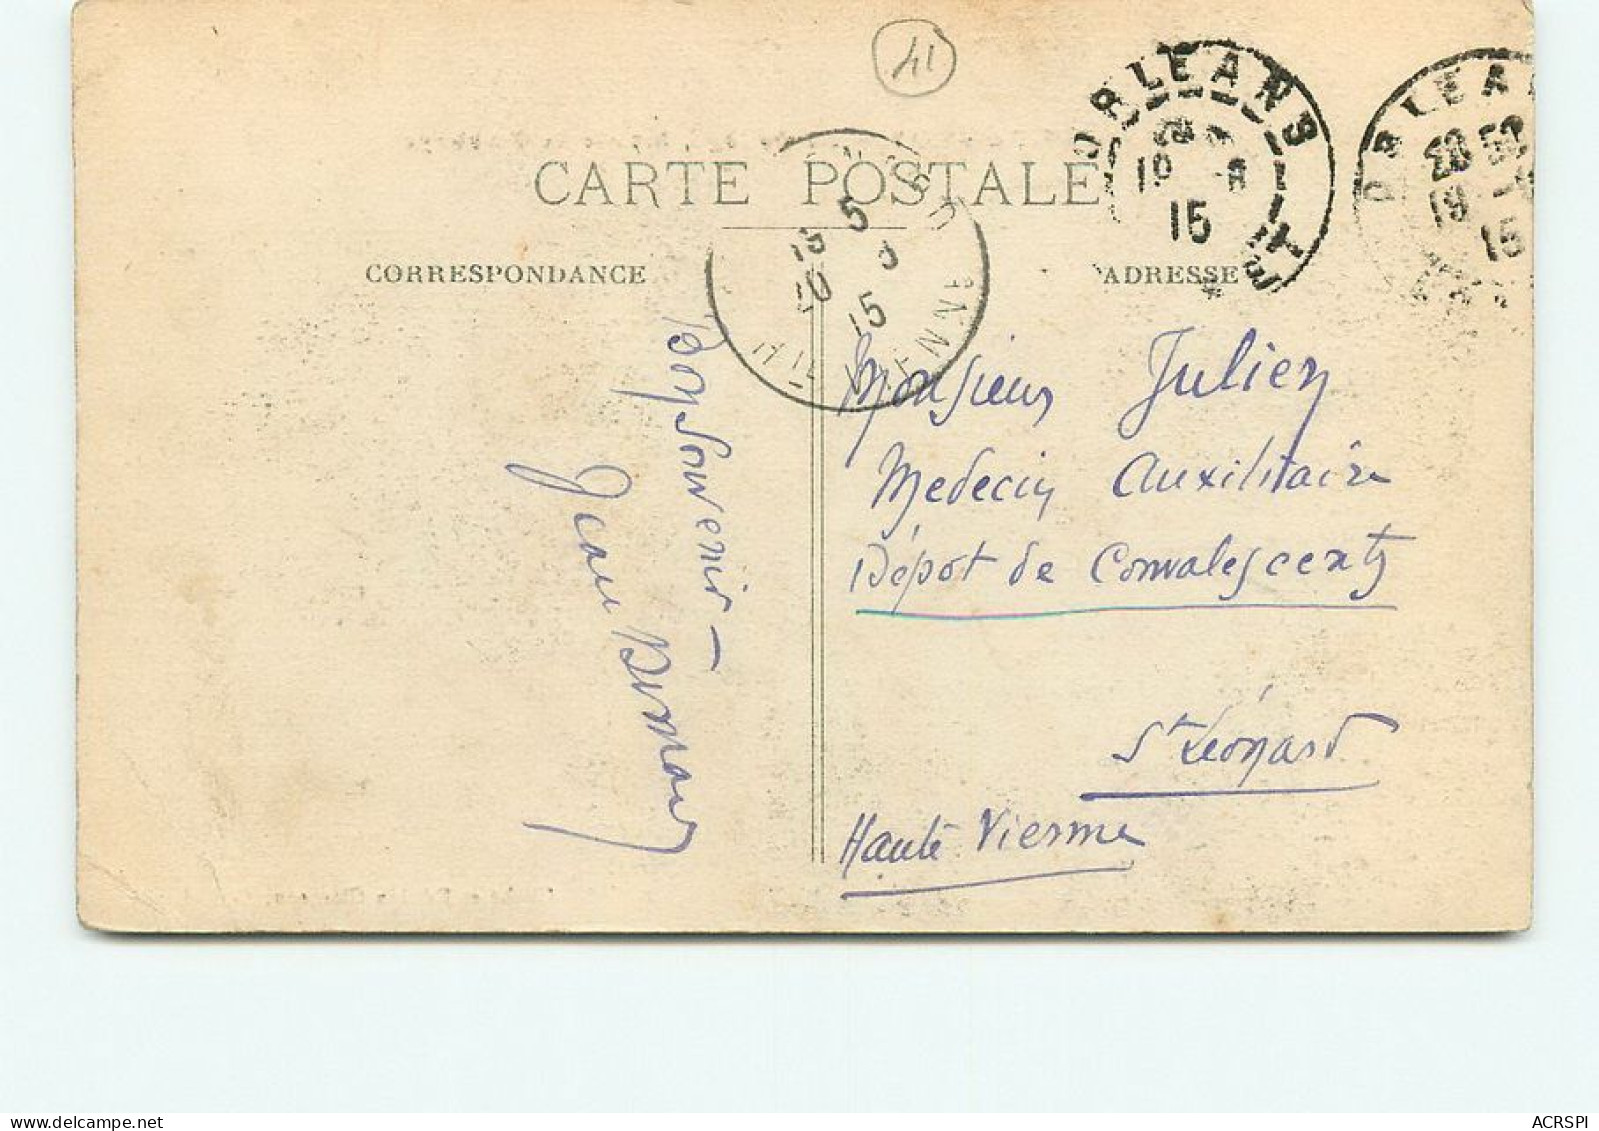 41
CARTE POSTALE
CORRESPONDANCE
ADRESSE
ORLEANS
19 -8
15
ORLEA
19
15
15 5
10
15
Bon Souvenir –
Jean
Monsieur Julien
Medecin Auxilitaire
Dépôt de Convalescents
St Léonard
Haute Vienne
ACRSPI